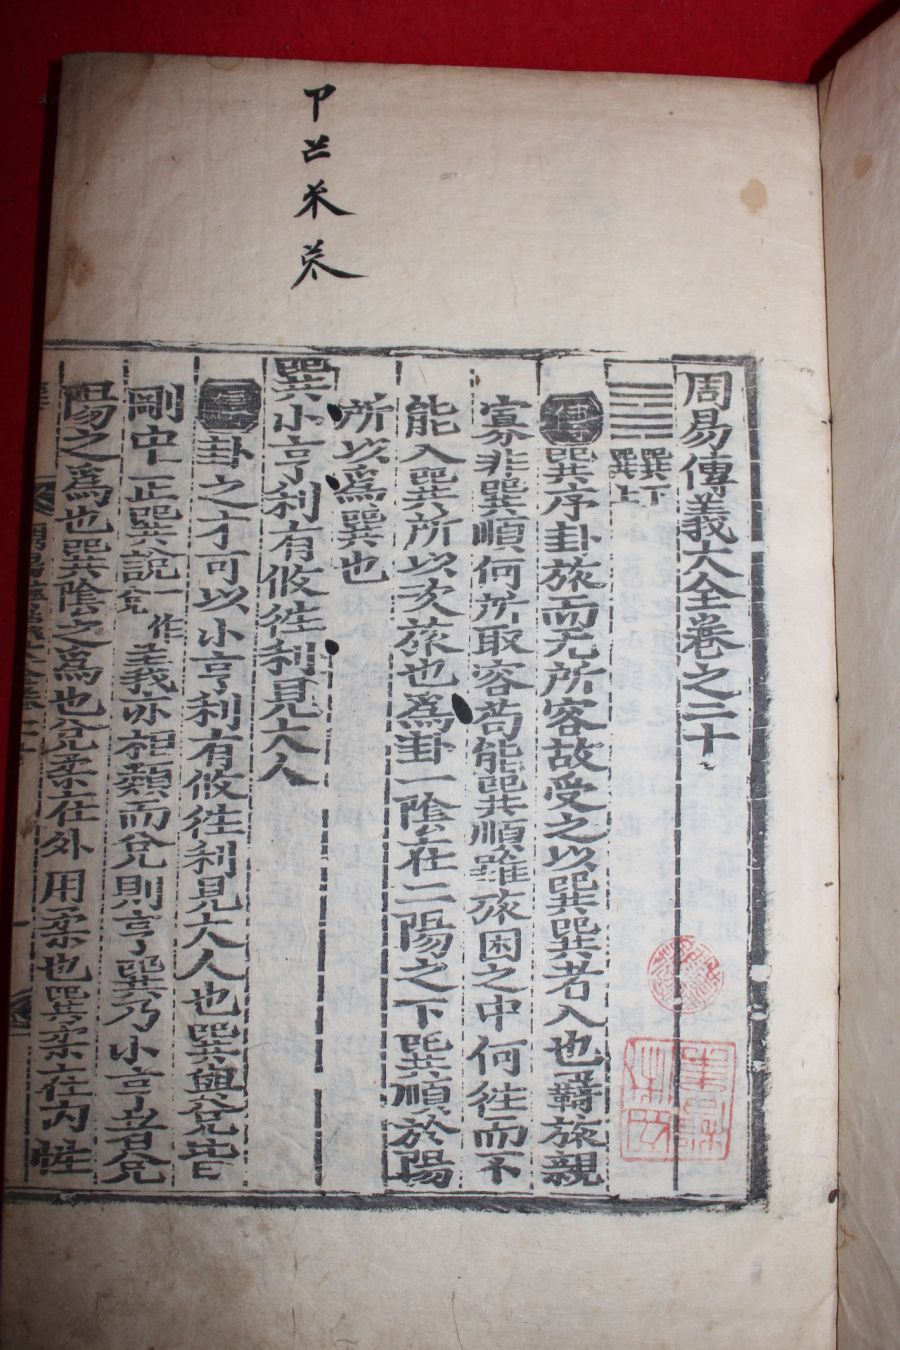 周易傳義大全卷之二十
巽下
巽上
傳巽序卦旅而无所容故受之以巽巽者入也羇旅親
寡非巽順何所取容苟能巽順雖旅困之中何往而不
能入巽所以次旅也爲卦一陰在二陽之下巽順於陽
所以爲巽也
巽小亨利有攸往利見大人
傳卦之才可以小亨利有攸往利見大人也巽與兌皆
剛中正巽說一作兌義亦相類而兌則亨巽乃小亨者兌
陽之爲也巽陰之爲也兌柔在外用柔也巽柔在內性